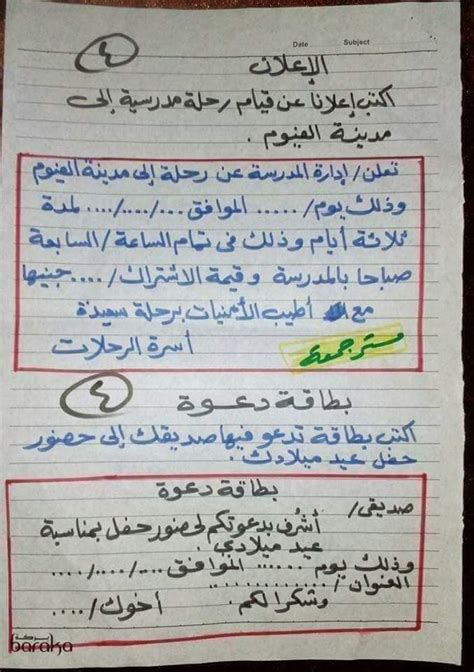 Date Subject
٤
الإعلان
اكتب إعلانا عن قيام رحلة مدرسية إلى
مدينة الفيوم .
تعلن / إدارة المدرسة عن رحلة إلى مدينة الفيوم
وذلك يوم / ..... الموافق .../.../.... لمدة
ثلاثة أيام وذلك فى تمام الساعة / السابعة
صباحا بالمدرسة وقيمة الاشتراك / .... جنيها
مع أطيب الأمنيات برحلة سعيدة
أسرة الرحلات
مستر جمعة
بطاقة دعوة
٤
اكتب بطاقة تدعو فيها صديقك إلى حضور
حفل عيد ميلادك .
بطاقة دعوة
صديقى /
أشرف بدعوتكم لحضور حفل بمناسبة
عيد ميلادي .
وذلك يوم ...... الموافق .../.../....
العنوان / ............
وشكرا لكم . أخوك / ....
بركة
baraka